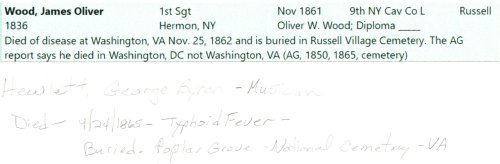 Wood, James Oliver 1st Sgt Nov 1861 9th NY Cav Co L Russell
1836 Hermon, NY Oliver W. Wood; Diploma _____
Died of disease at Washington, VA Nov. 25, 1862 and is buried in Russell Village Cemetery. The AG
report says he died in Washington, DC not Washington, VA (AG, 1850, 1865, cemetery)
Hewlett, George Byron - Musician
Died - 4/24/1865 - Typhoid Fever -
Buried - Poplar Grove - National Cemetery - VA